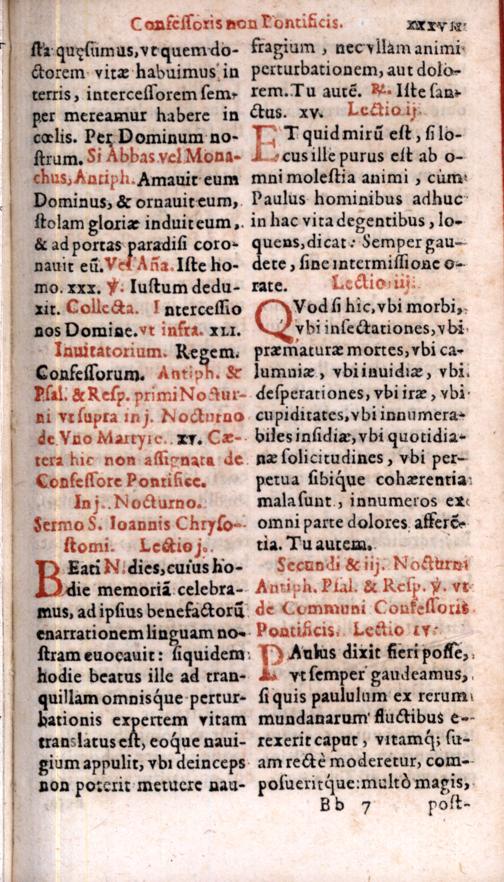 Confessoris non Pontificis.
sta quęsumus, vt quem do-
ctorem vitæ habuimus in
terris, intercessorem sem-
per mereamur habere in
cœlis. Per Dominum no-
strum. Si Abbas vel Mona-
chus, Antiph. Amauit eum
Dominus, & ornauit eum,
stolam gloriæ induit eum,
& ad portas paradisi coro-
nauit eũ. Vel Aña. Iste ho-
mo. xxx. ℣. Iustum dedu-
xit. Collecta. Intercessio
nos Domine. vt infra. XLI.
Inuitatorium. Regem.
Confessorum. Antiph. &
Psal. & Resp. primi Noctur-
ni vt supra in j. Nocturno
de Vno Martyre. xv. Cæ-
tera hic non assignata de
Confessore Pontifice.
In j. Nocturno.
Sermo S. Ioannis Chryso-
stomi. Lectio j.
BEati N. dies, cuius ho-
die memoriã celebra-
mus, ad ipsius benefactorũ
enarrationem linguam no-
stram euocauit: siquidem
hodie beatus ille ad tran-
quillam omnisque pertur-
bationis expertem vitam
translatus est, eoque naui-
gium appulit, vbi deinceps
non poterit metuere nau-
fragium, nec vllam animi
perturbationem, aut dolo-
rem. Tu autẽ. ℟. Iste san-
ctus. xv. Lectio ij.
ET quid mirũ est, si lo-
cus ille purus est ab o-
mni molestia animi, cùm
Paulus hominibus adhuc
in hac vita degentibus, lo-
quens, dicat: Semper gau-
dete, sine intermissione o-
rate. Lectio iij.
QVod si hîc, vbi morbi,
vbi insectationes, vbi
præmaturæ mortes, vbi ca-
lumniæ, vbi inuidiæ, vbi
desperationes, vbi iræ, vbi
cupiditates, vbi innumera-
biles insidiæ, vbi quotidia-
næ solicitudines, vbi per-
petua sibique cohærentia
mala sunt, innumeros ex
omni parte dolores afferẽ-
tia. Tu autem.
Secundi & iij. Nocturni
Antiph. Psal. & Resp. ℣. vt
de Communi Confessoris
Pontificis. Lectio iv.
PAulus dixit fieri posse,
vt semper gaudeamus,
si quis paululum ex rerum
mundanarum fluctibus e-
rexerit caput, vitamq; su-
am rectè moderetur, com-
posueritque: multò magis,
Bb 7 post-